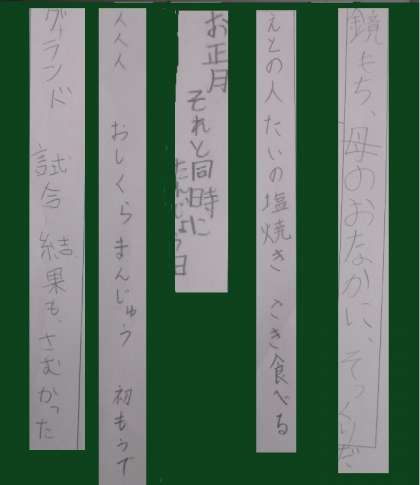 鏡もち、母のおなかに、そっくりだ
えとの人 たいの塩焼き さき食べる
お正月
それと同時に
たんじょう日
人人人 おしくらまんじゅう 初もうで
グランド 試合結果も、さむかった